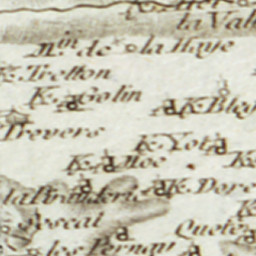 la Val
m.in de la Haye
K. Tretton
K. Golin
K. Bleg
Trevers
K. Yot
K. Moe
K.
la Piauderie
K. Dore
K
Pescal
Quete
les Pernau